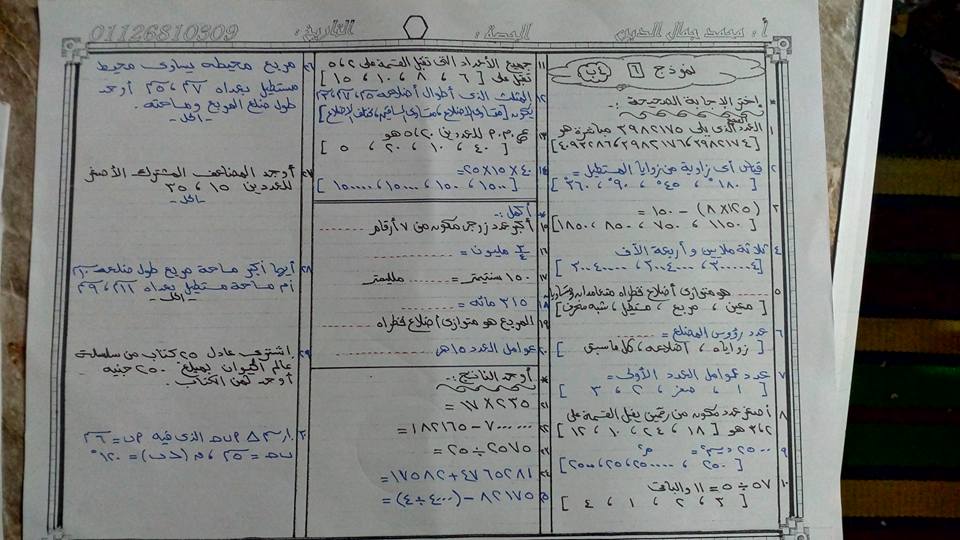 أ. محمد جمال الدين الحصة : التاريخ : 01126810309
نموذج ٦ ٤ب
* اختر الإجابة الصحيحة :-
١ العدد الذى يلى ٣٩٨٢١٧٥ مباشرة هو
[ ٣٩٨٢١٧٤ ، ٣٩٨٢١٧٦ ، ٤٠٩٣٢٨٦ ]
٢ قياس أى زاوية من زوايا المستطيل =
[ ١٨٠° ، ٩٠° ، ٤٥° ، ٣٦٠° ]
٣ (١٢٥ × ٨) - ١٥٠ =
[ ١١٥٠ ، ٧٥٠ ، ٨٥٠ ، ١٨٥٠ ]
٤ ثلاثة ملايين وأربعة آلاف
٥ هو متوازى أضلاع قطراه متعامدان ومتساويان
[ معين ، مربع ، مستطيل ، شبه منحرف ]
٦ عدد رؤوس المضلع =
[ زواياه ، أضلاعه ، كل ماسبق ]
٧ عدد عوامل العدد الأولى =
[ ١ ، صفر ، ٢ ، ٣ ]
٨ أصغر عدد مكون من رقمين يقبل القسمة على
٢ ، ٣ هو [ ١٨ ، ٢٤ ، ١٠ ، ١٢ ]
٩ ٢٥٠٠ ديسم² = م²
١٠ ٥٧ ÷ ٥ = ١١ والباقى
[ ٣ ، ٢ ، ١ ، ٤ ]
١١ جميع الأعداد التى تقبل القسمة على ٢ ، ٥
تقبل على [ ٦ ، ٨ ، ١٠ ، ١٥ ]
١٢ المثلث الذى أطوال أضلاعه
يكون [ متساوى الأضلاع ، متساوى الساقين ، مختلف الأضلاع ]
١٣ ع.م.م للعددين ٢٠ ، ٥ هو
[ ٤٠ ، ١٠ ، ٢٠ ، ٥ ]
١٤ ٤٠ × ١٥ × ٢٥ =
[ ١٥٠٠ ، ١٥٠ ، ١٥٠٠٠ ، ١٥٠٠٠٠ ]
* أكمل :-
١٥ أكبر عدد زوجى مكون من ٧ أرقام
١٦ مليون =
١٧ ١٥٠ سنتيمتر = ملليمتر
١٨ ٣١٥ مائه =
١٩ المربع هو متوازى أضلاع قطراه
٢٠ عوامل العدد ١٥ هى
* أوجد الناتج :-
٢١ ٢٣٥ × ١٧ =
٢٢ ٧٠٠٠٠٠ - ١٨٢١٦٥ =
٢٣ ٢٠٧٥ ÷ ٢٥ =
٢٤ ٤٧٦٥٢٨١ + ١٧٥٨٢ =
٢٥ ٨٢١٧٥ - (٤٠٠٠ ÷ ٤) =
٢٦ مربع محيطه يساوى محيط
مستطيل بعداه ٢٧سم ، ٢٥سم أوجد
طول ضلع المربع ومساحته .
- الحل -
٢٧ أوجد المضاعف المشترك الأصغر
للعددين ١٥ ، ٣٥
- الحل -
٢٨ أيهما أكبر مساحة مربع طول ضلعه ١٠سم
أم مساحة مستطيل بعداه ١١سم ، ٩سم
- الحل -
٢٩ اشترى عادل ٢٥ كتاب من سلسلة
عالم الحيوان بمبلغ ٢٥٠ جنيه
أوجد ثمن الكتاب .
٣٠ ارسم △ أ ب جـ الذى فيه أ ب = ٣سم
ب جـ = ٥سم ، ق (ب) = ١٢٠°